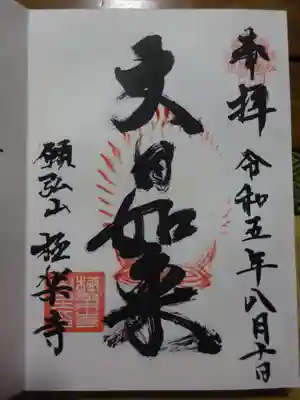 奉拝 令和五年八月十日
大日如来
願弘山 極楽寺